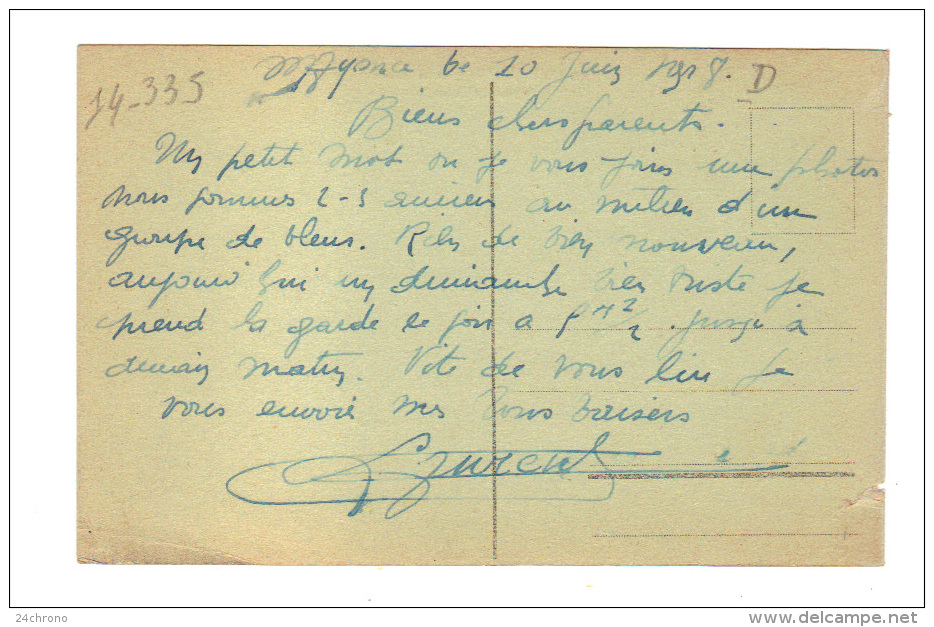 14-335
Mayence le 10 Juin 1928. D
Biens chers parents.
Un petit mot ou je vous joins une photos
nous sommes 2-3 anciens au milieu d'un
groupe de bleus. Rien de bien nouveau,
aujourd'hui un dimanche bien triste je
prend la garde ce soir a 5 H 1/2 jusqu'à
demain matin. Vite de vous lire Je
vous envoie mes bons baisers
24chrono
www.delcampe.net